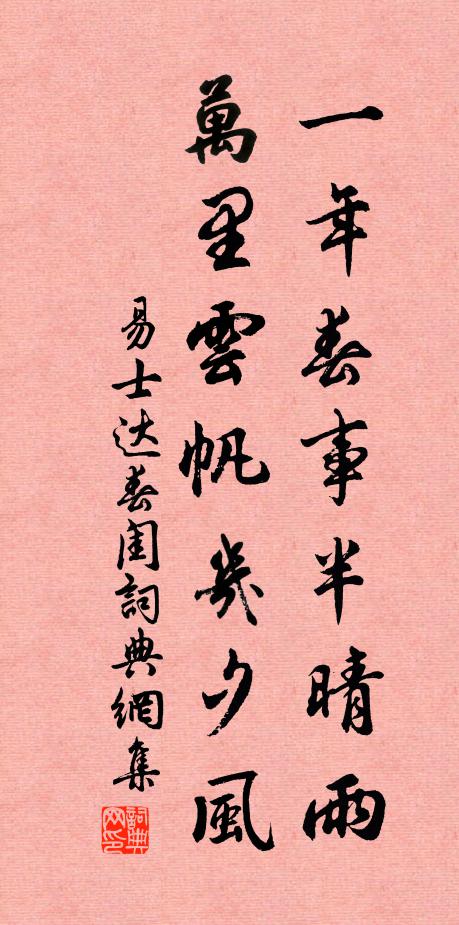 一年春事半晴雨
萬里雲帆幾夕風
易士达春闺詞典網集
詞典網印